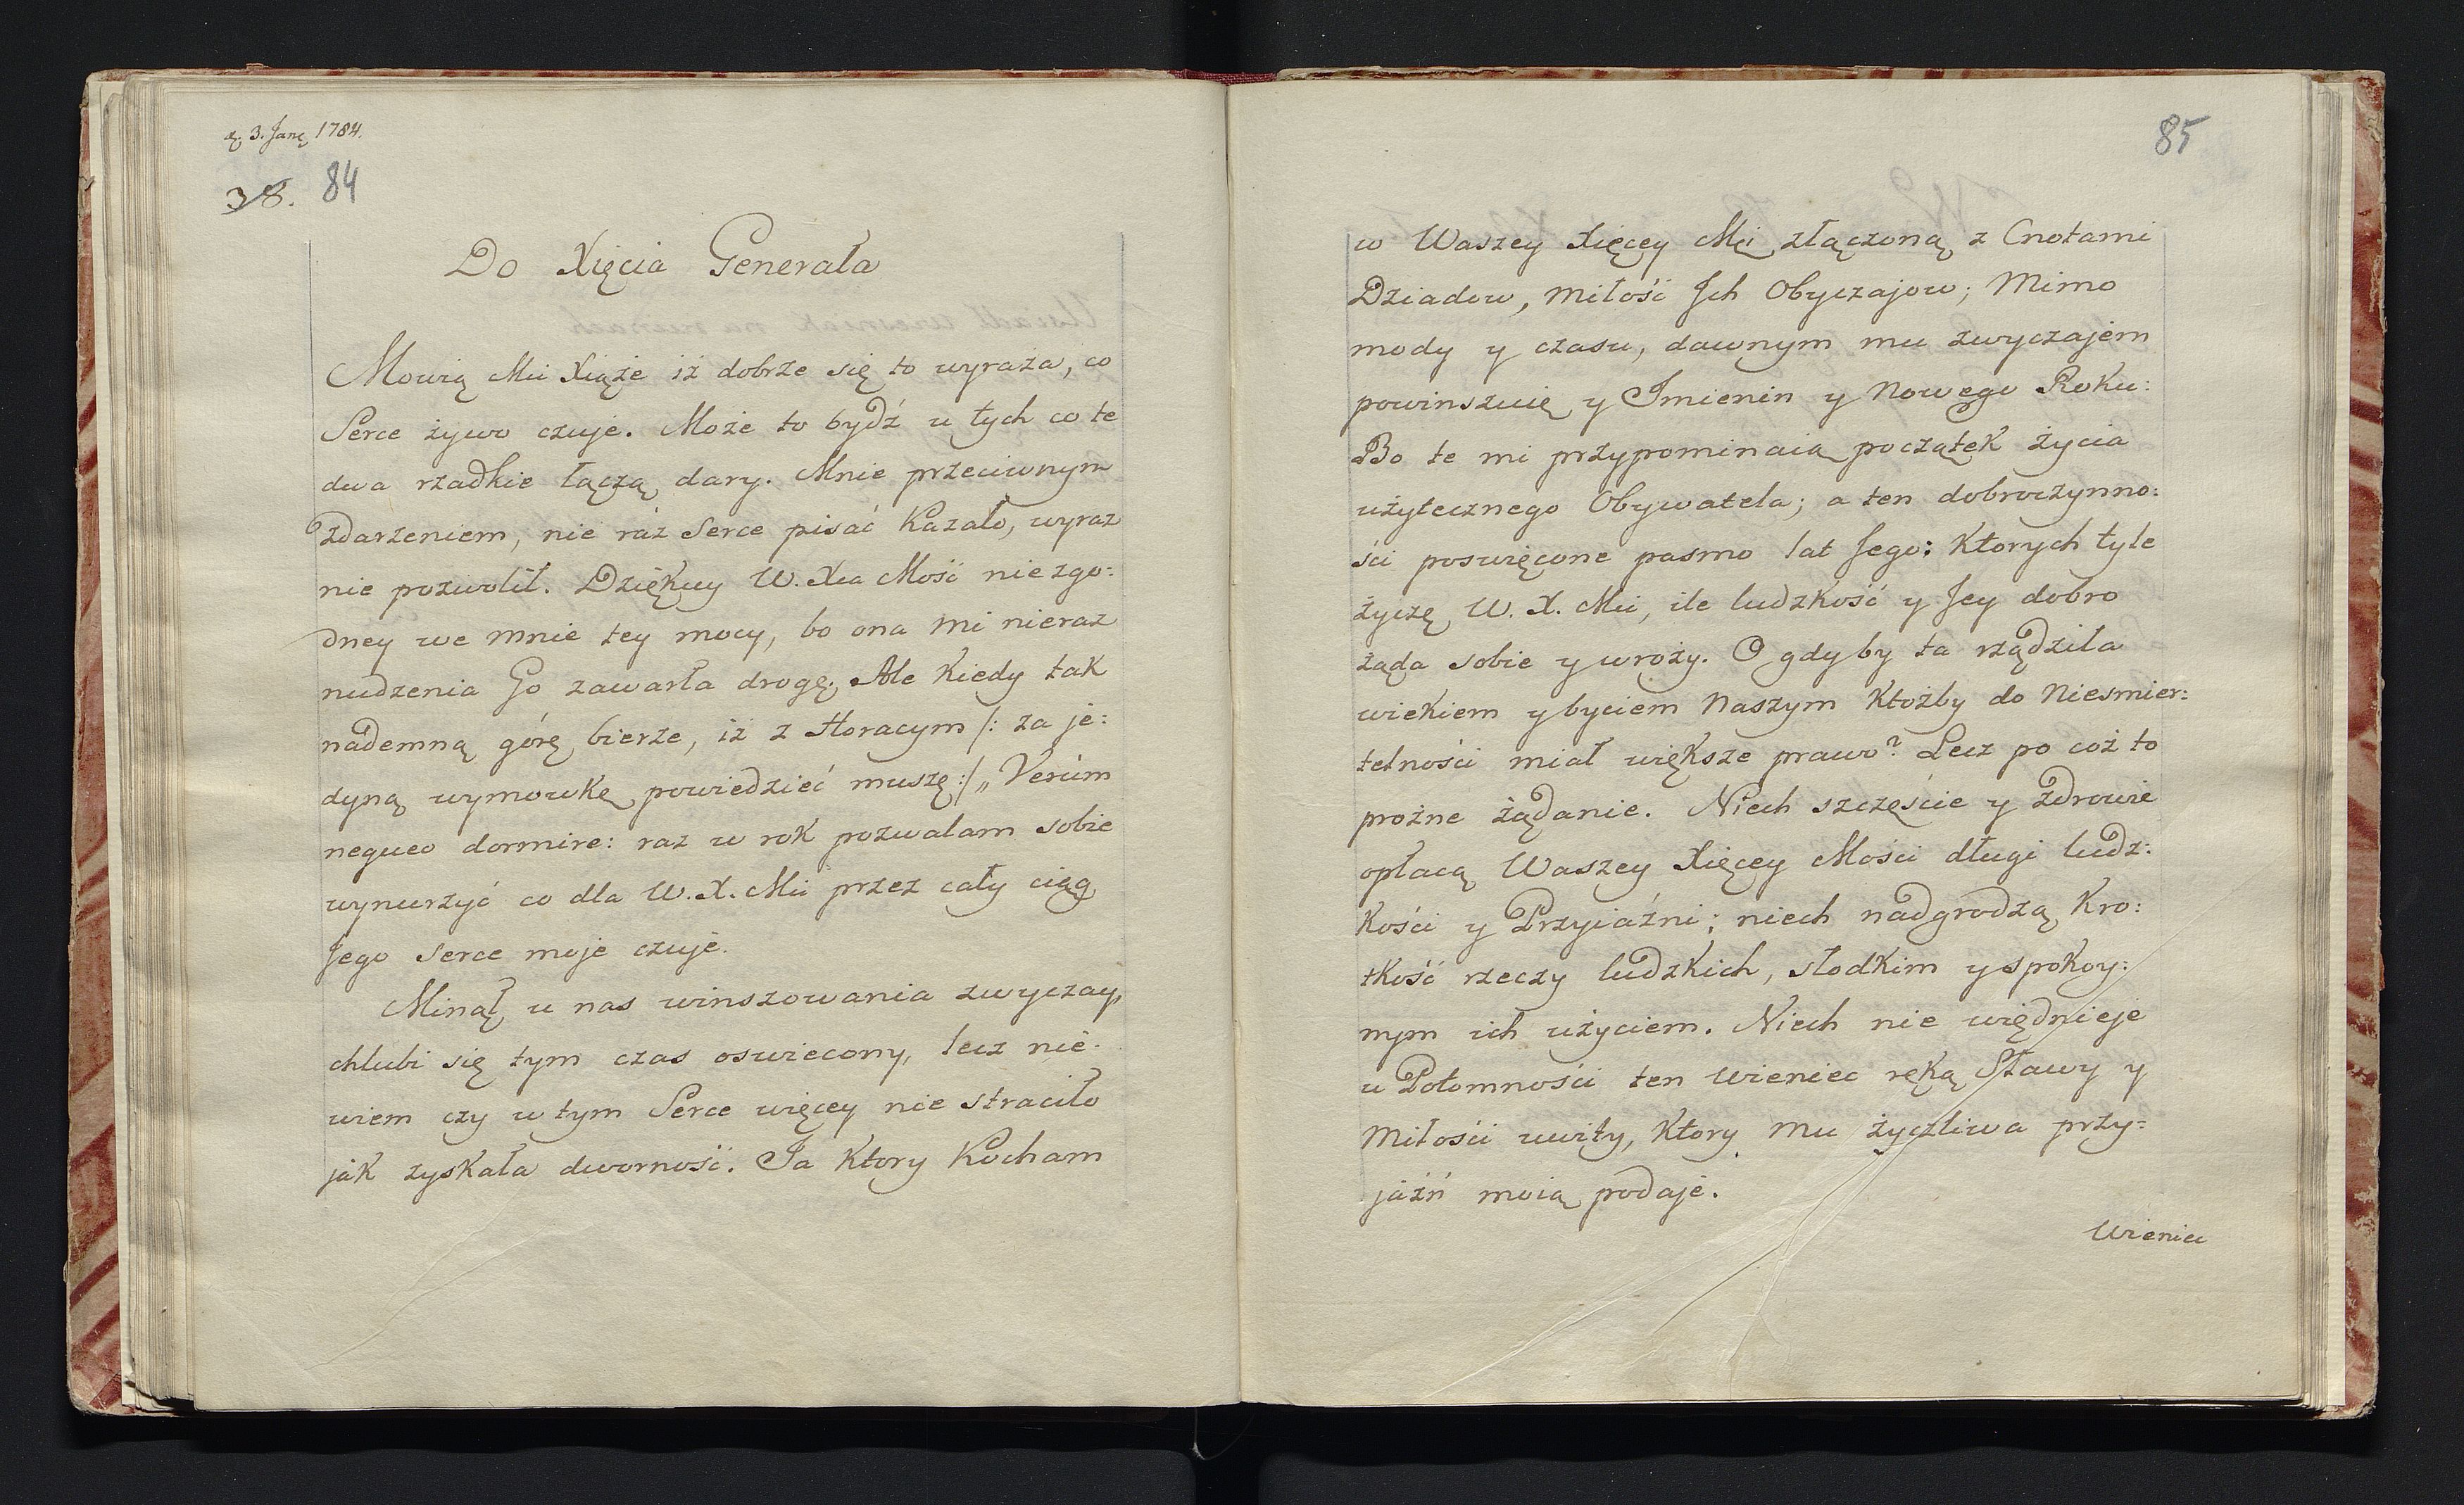 d. 3. Janę 1784.
38. 84
Do Xięcia Generała
Mowią Mci Xiąże iż dobrze się to wyraża, co
Serce żywo czuje. Może to bydź u tych co te
dwa rzadkie łączą dary. Mnie przeciwnym
zdarzeniem, nie raz Serce pisać Kazało, wyraz
nie pozwolił. Dziękuy W. Xca Mość niezgo:
dney we mnie tey mocy, bo ona mi nieraz
nudzenia Go zawarła drogę. Ale Kiedy tak
nademną górę bierze, iż z Horacym /: za je:
dyną wymowkę powiedzieć muszę :/ „Verùm
nequeo dormire: raz w rok pozwalam sobie
wynurzyć co dla W. X. Mci przez cały ciąg
Jego Serce moje czuje.
Minął u nas winszowania zwyczay,
chlubi się tym czas oswiecony, lecz nie
wiem czy w tym Serce więcey nie straciło
jak zyskała dworność. Ja Ktory Kocham
85
w Waszey Xięcey Mci złączoną z Cnotami
Dziadow, miłość Jch Obyczajow; Mimo
mody y czasu, dawnym mu zwyczajem
powinszuię y Jmienin y Nowego Roku:
Bo te mi przypominaią początek życia
użytecznego Obywatela; a ten dobroczynno:
ści poswięcone pasmo lat Jego: Ktorych tyle
życzę W. X. Mci, ile ludzkość y Jey dobro
żąda sobie y wroży. O gdyby ta rządziła
wiekiem y byciem Naszym Ktożby do Niesmier:
telności miał większe prawo? Lecz po coż to
prożne żądanie. Niech szczęście y zdrowie
opłacą Waszey Xięcey Mości długi ludz:
kości y Przyiaźni; niech nadgrodzą Kro:
tkość rzeczy ludzkich, słodkim y spokoy:
nym ich użyciem. Niech nie więdnieje
u Potomności ten Wieniec ręką Sławy y
Miłości uwity, Ktory mu życzliwa przy:
jaźń moią podaje.
Wieniec